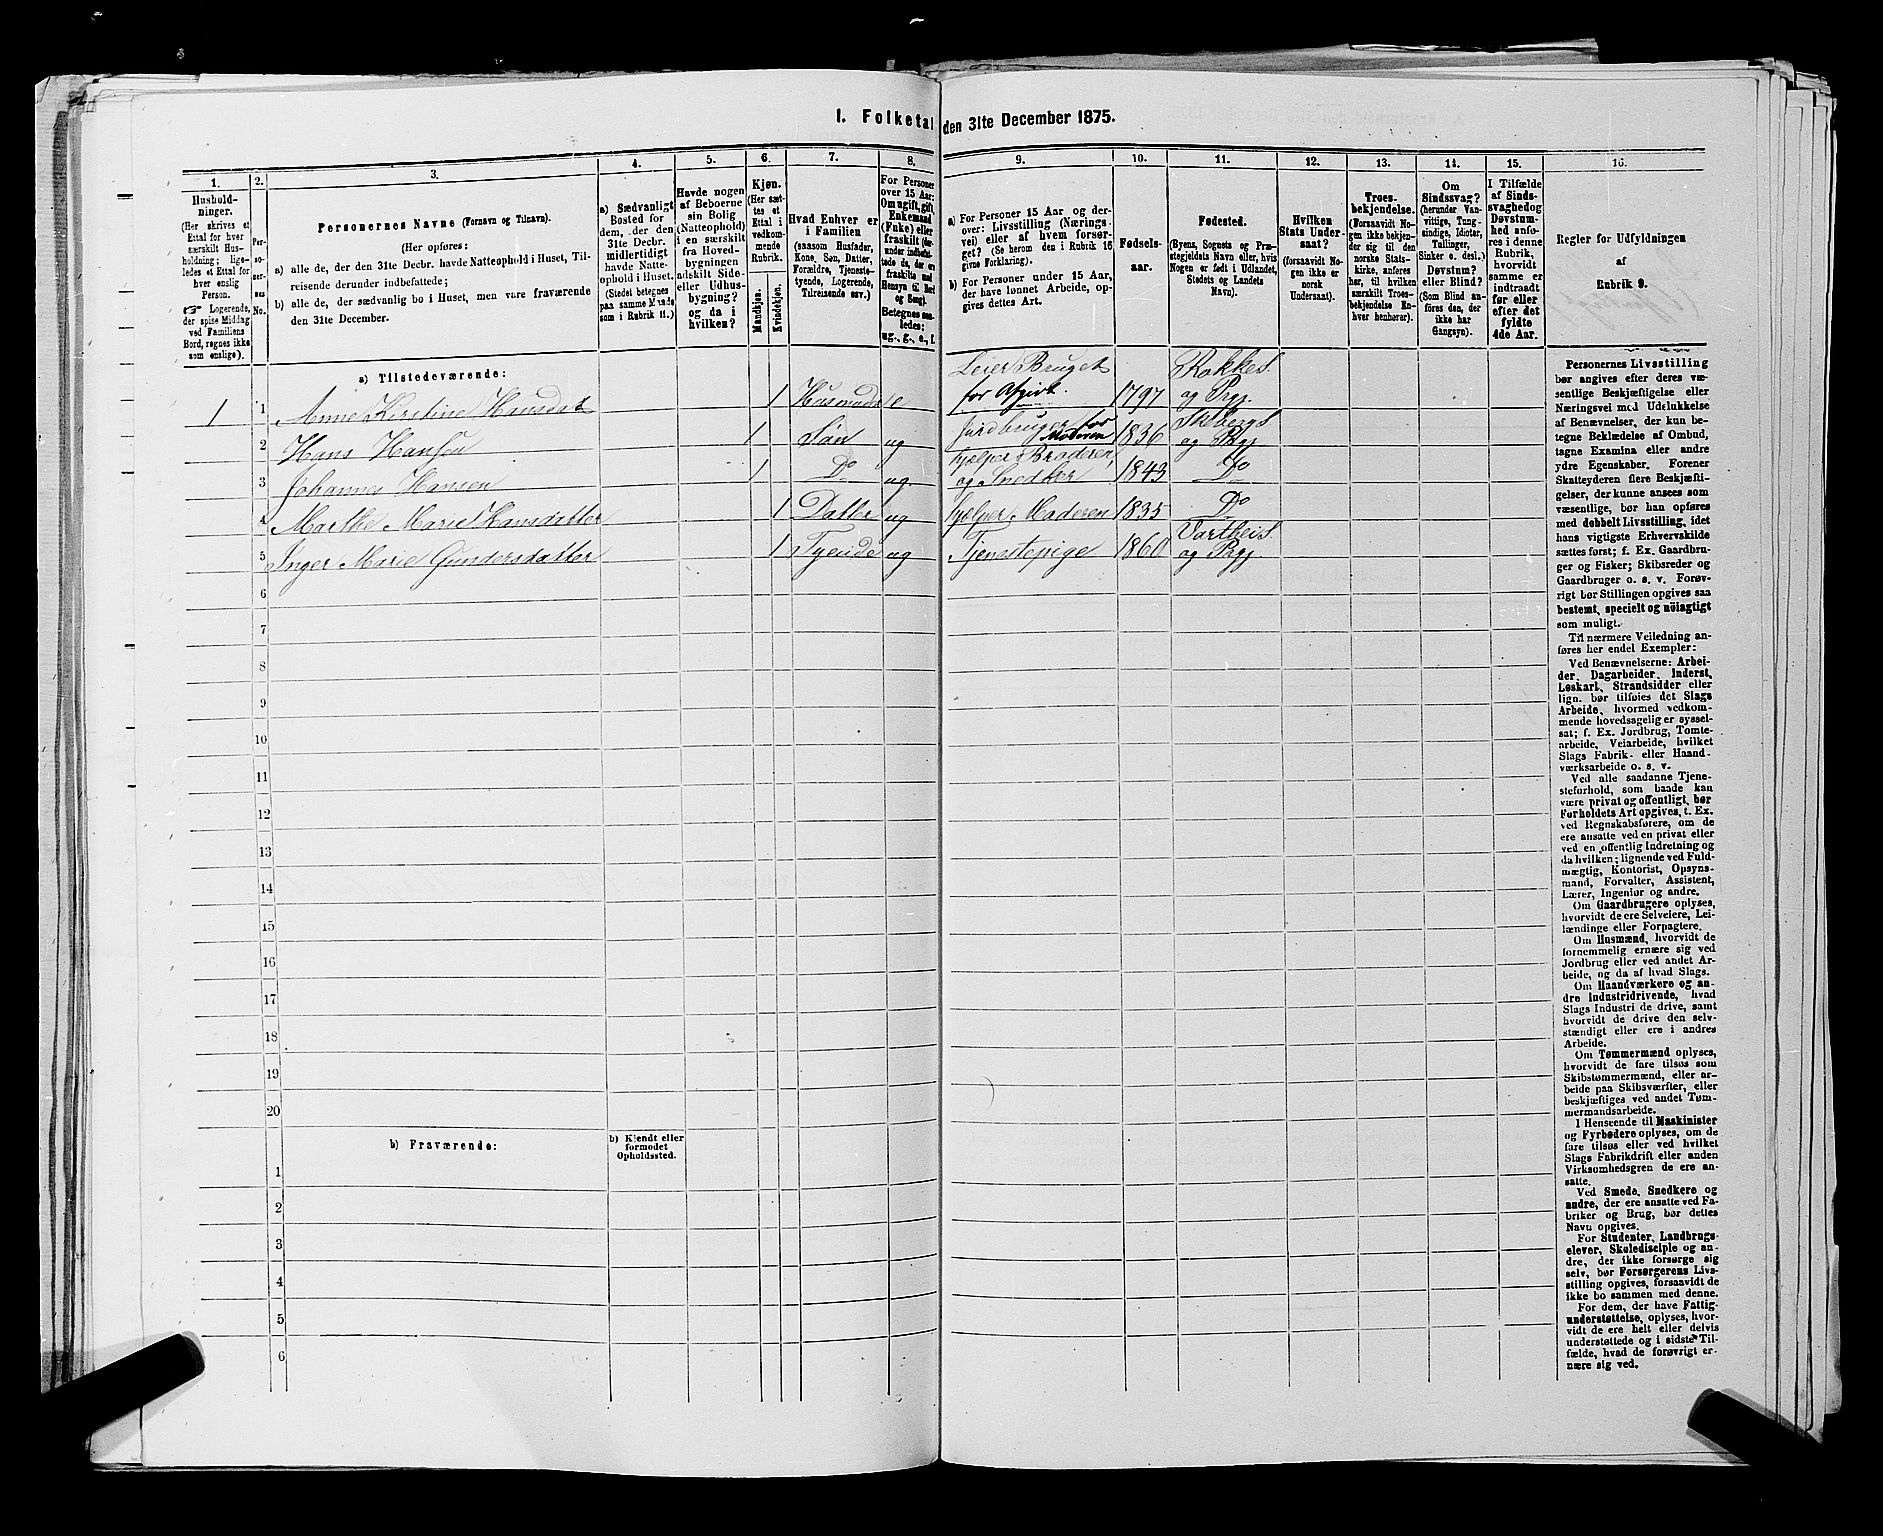 1. Folketal den 31te December 1875.
1.
Hushold-
ninger.
(Her skrives et
Ettal for hver
særskilt Hus-
holdning; lige-
ledes et Ettal for
hver enslig
Person.
☞ Logerende,
der spise Middag
ved Familiens
Bord, regnes ikke
som enslige).
2.
Per-
so-
ner-
nes
No.
3.
Personernes Navne (Fornavn og Tilnavn).
(Her opføres:
a) alle de, der den 31te Decbr. havde Natteophold i Huset, Til-
reisende derunder indbefattede;
b) alle de, der sædvanlig bo i Huset, men vare fraværende
den 31te December.
4.
a) Sædvanligt
Bosted for
dem, der den
31te Decbr.
midlertidigt
havde Natte-
ophold i Huset.
(Stedet betegnes
paa samme Maade
som i Rubrik 11.)
5.
Havde nogen
af Beboerne
sin Bolig
(Natteophold)
i en særskilt
fra Hoved-
bygningen
adskilt Side-
eller Udhus-
bygning?
og da i
hvilken?
6.
Kjøn.
(Her sæt-
tes et
Ettal i
vedkom-
mende
Rubrik.
Mandkjøn.
Kvindekjøn.
7.
Hvad Enhver er
i Familien
(saasom Husfader,
Kone, Søn, Datter,
Forældre, Tjeneste-
tyende, Logerende,
Tilreisende osv.)
8.
For Personer
over 15 Aar:
Om ugift, gift,
Enkemand
(Enke) eller
fraskilt (der-
under indbefat-
tede de, der ere
fraskilte med
Hensyn til Bord
og Seng).
Betegnes saa-
ledes:
ug., g., e., f.
9.
a) For Personer 15 Aar og der-
over: Livsstilling (Nærings-
vei) eller af hvem forsør-
get? (Se herom den i Rubrik 16
givne Forklaring).
b) For Personer under 15 Aar,
der have lønnet Arbeide, op-
gives dettes Art.
10.
Fødsels-
aar.
11.
Fødested.
(Byens, Sognets og Præ-
stegjeldets Navn eller, hvis
Nogen er født i Udlandet,
Stedets og Landets
Navn).
12.
Hvilken
Stats Under-
saat?
(forsaavidt No-
gen ikke er
norsk
Undersaat).
13.
Troes-
bekjendelse.
(Forsaavidt No-
gen ikke bekjen-
der sig til den
norske Stats-
kirke, anføres
her, til hvilken
særskilt Troes-
bekjendelse En-
hver henhører).
14.
Om
Sindssvag?
(herunder Van-
vittige, Tung-
sindige, Idioter,
Tullinger,
Sinker o. desl.)
Døvstum?
eller Blind?
(Som Blind an-
føres den, der
ikke har
Gangsyn).
15.
I Tilfælde
af Sinds-
svaghed og
Døvstum-
hed anfø-
res i denne
Rubrik,
hvorvidt
samme er
indtraadt
før eller
efter det
fyldte
4de Aar.
16.
Regler for Udfyldningen
af
Rubrik 9.
a) Tilstedeværende:
1 1 Anne Kirstine Hansdat 1 Husmoder e Leier Bruget for Afgivt. 1797 Rokkes og Prgj.
2 Hans Hansen 1 Søn ug Jordbruger for Moderen 1836 Skebergs og Prgj
3 Johannes Hansen 1 Do ug. Hjelper Broderen, og Snedker 1843 Do
4 Marthe Marie Hansdatter 1 Datter ug Hjelper Moderen 1835 Do
5 Inger Marie Gundersdatter 1 Tyende ug Tjenestepige 1860 Varteis og Prgj.
6
7
8
9
10
11
12
13
14
15
16
17
18
19
20
b) Fraværende:
b) Kjendt eller
formodet
Opholdssted.
1
2
3
4
5
6
Personernes Livsstilling
bør angives efter deres væ-
sentlige Beskjæftigelse eller
Næringsvei med Udelukkelse
af Benævnelser, der kun be-
tegne Beklædelse af Ombud,
tagne Examina eller andre
ydre Egenskaber. Forener
Skatteyderen flere Beskjæfti-
gelser, der kunne ansees som
væsentlige, bør han opføres
med dobbelt Livsstilling, idet
hans vigtigste Erhvervskilde
sættes først; f. Ex. Gaardbru-
ger og Fisker; Skibsreder og
Gaardbruger o. s. v. Forøv-
rigt bør Stillingen opgives saa
bestemt, specielt og nöiagtigt
som muligt.
Til nærmere Veiledning an-
føres her endel Exempler:
Ved Benævnelserne: Arbei-
der, Dagarbeider, Inderst,
Løskarl, Strandsidder eller
lign. bør tilføies det Slags
Arbeide, hvormed vedkom-
mende hovedsagelig er syssel-
sat; f. Ex. Jordbrug, Tomte-
arbeide, Veiarbeide, hvilket
Slags Fabrik- eller Haand-
værksarbeide o. s. v.
Ved alle saadanne Tjene-
steforhold, som baade kan
være privat og offentligt, bør
Forholdets Art opgives, t. Ex.
ved Regnskabsførere, om de
ere ansatte ved en privat eller
ved en offentlig Indretning og
da hvilken; lignende ved Fuld-
mægtig, Kontorist, Opsyns-
mand, Forvalter, Assistent,
Lærer, Ingeniør og andre.
Om Gaardbrugere oplyses,
hvorvidt de ere Selveiere, Lei-
lændinge eller Forpagtere.
Om Husmænd, hvorvidt de
fornemmelig ernære sig ved
Jordbrug eller ved andet Ar-
beide, og da af hvad Slags.
Om Haandværkere og an-
dre Industridrivende, hvad
Slags Industri de drive, samt
hvorvidt de drive den selv-
stændigt eller ere i andres
Arbeide.
Om Tømmermænd oplyses,
hvorvidt de fare tilsøs som
Skibstømmermænd, eller ar-
beide paa Skibsværfter, eller
beskjæftiges ved andet Tøm-
mermandsarbeide.
I Henseende til Maskinister
og Fyrbødere oplyses, om de
fare tilsøs eller ved hvilket
Slags Fabrikdrift eller anden
Virksomhedsgren de ere an-
satte.
Ved Smede, Snedkere og
andre, der ere ansatte ved Fa-
briker og Brug, bør dettes
Navn opgives.
For Studenter, Landbrugs-
elever, Skoledisciple og an-
dre, der ikke forsørge sig
selv, bør Forsørgerens Livs-
stilling opgives, forsaavidt de
ikke bo sammen med denne.
For dem, der have Fattig-
understøttelse, oplyses, hvor-
vidt de ere helt eller delvis
understøttede og i sidste Til-
fælde, hvad de forøvrigt er-
nære sig ved.